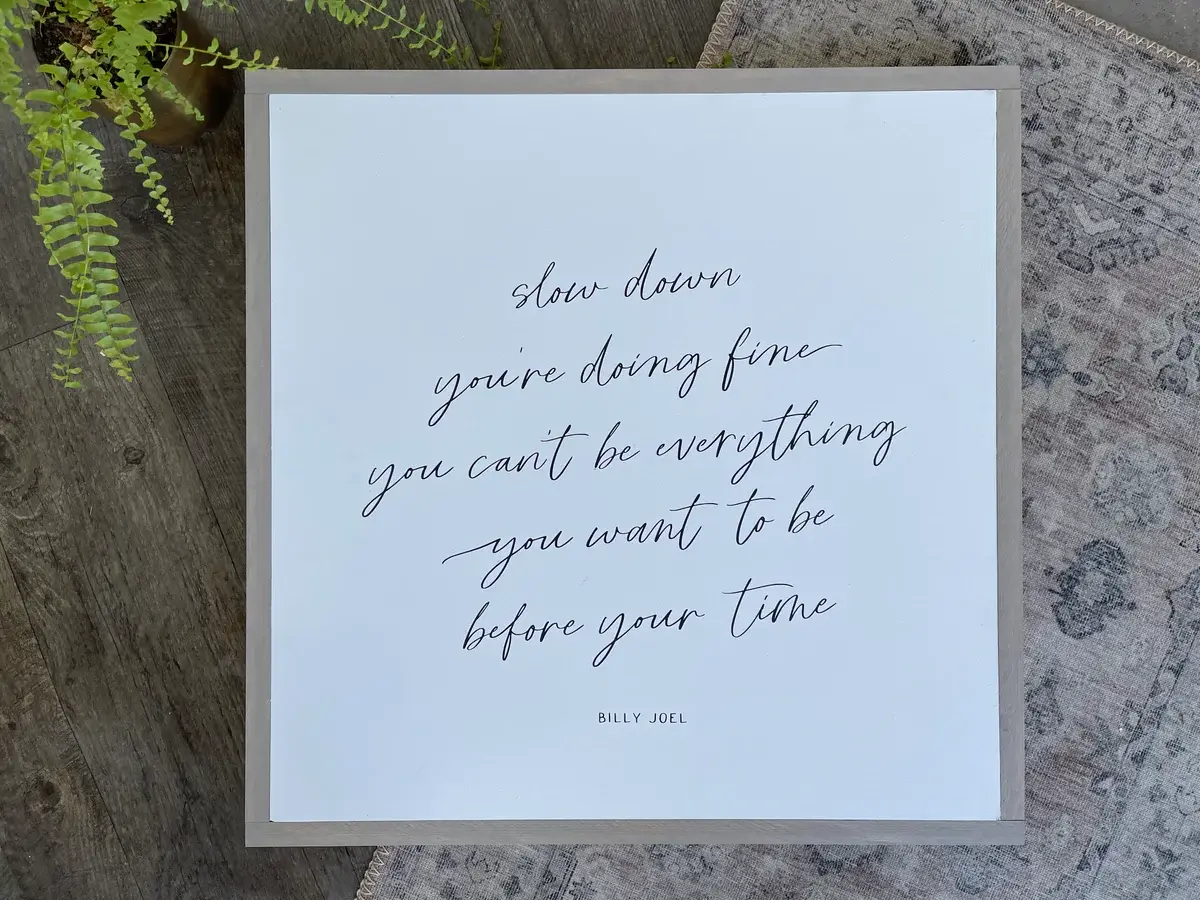 slow down
you're doing fine
you can't be everything
you want to be
before your time
BILLY JOEL